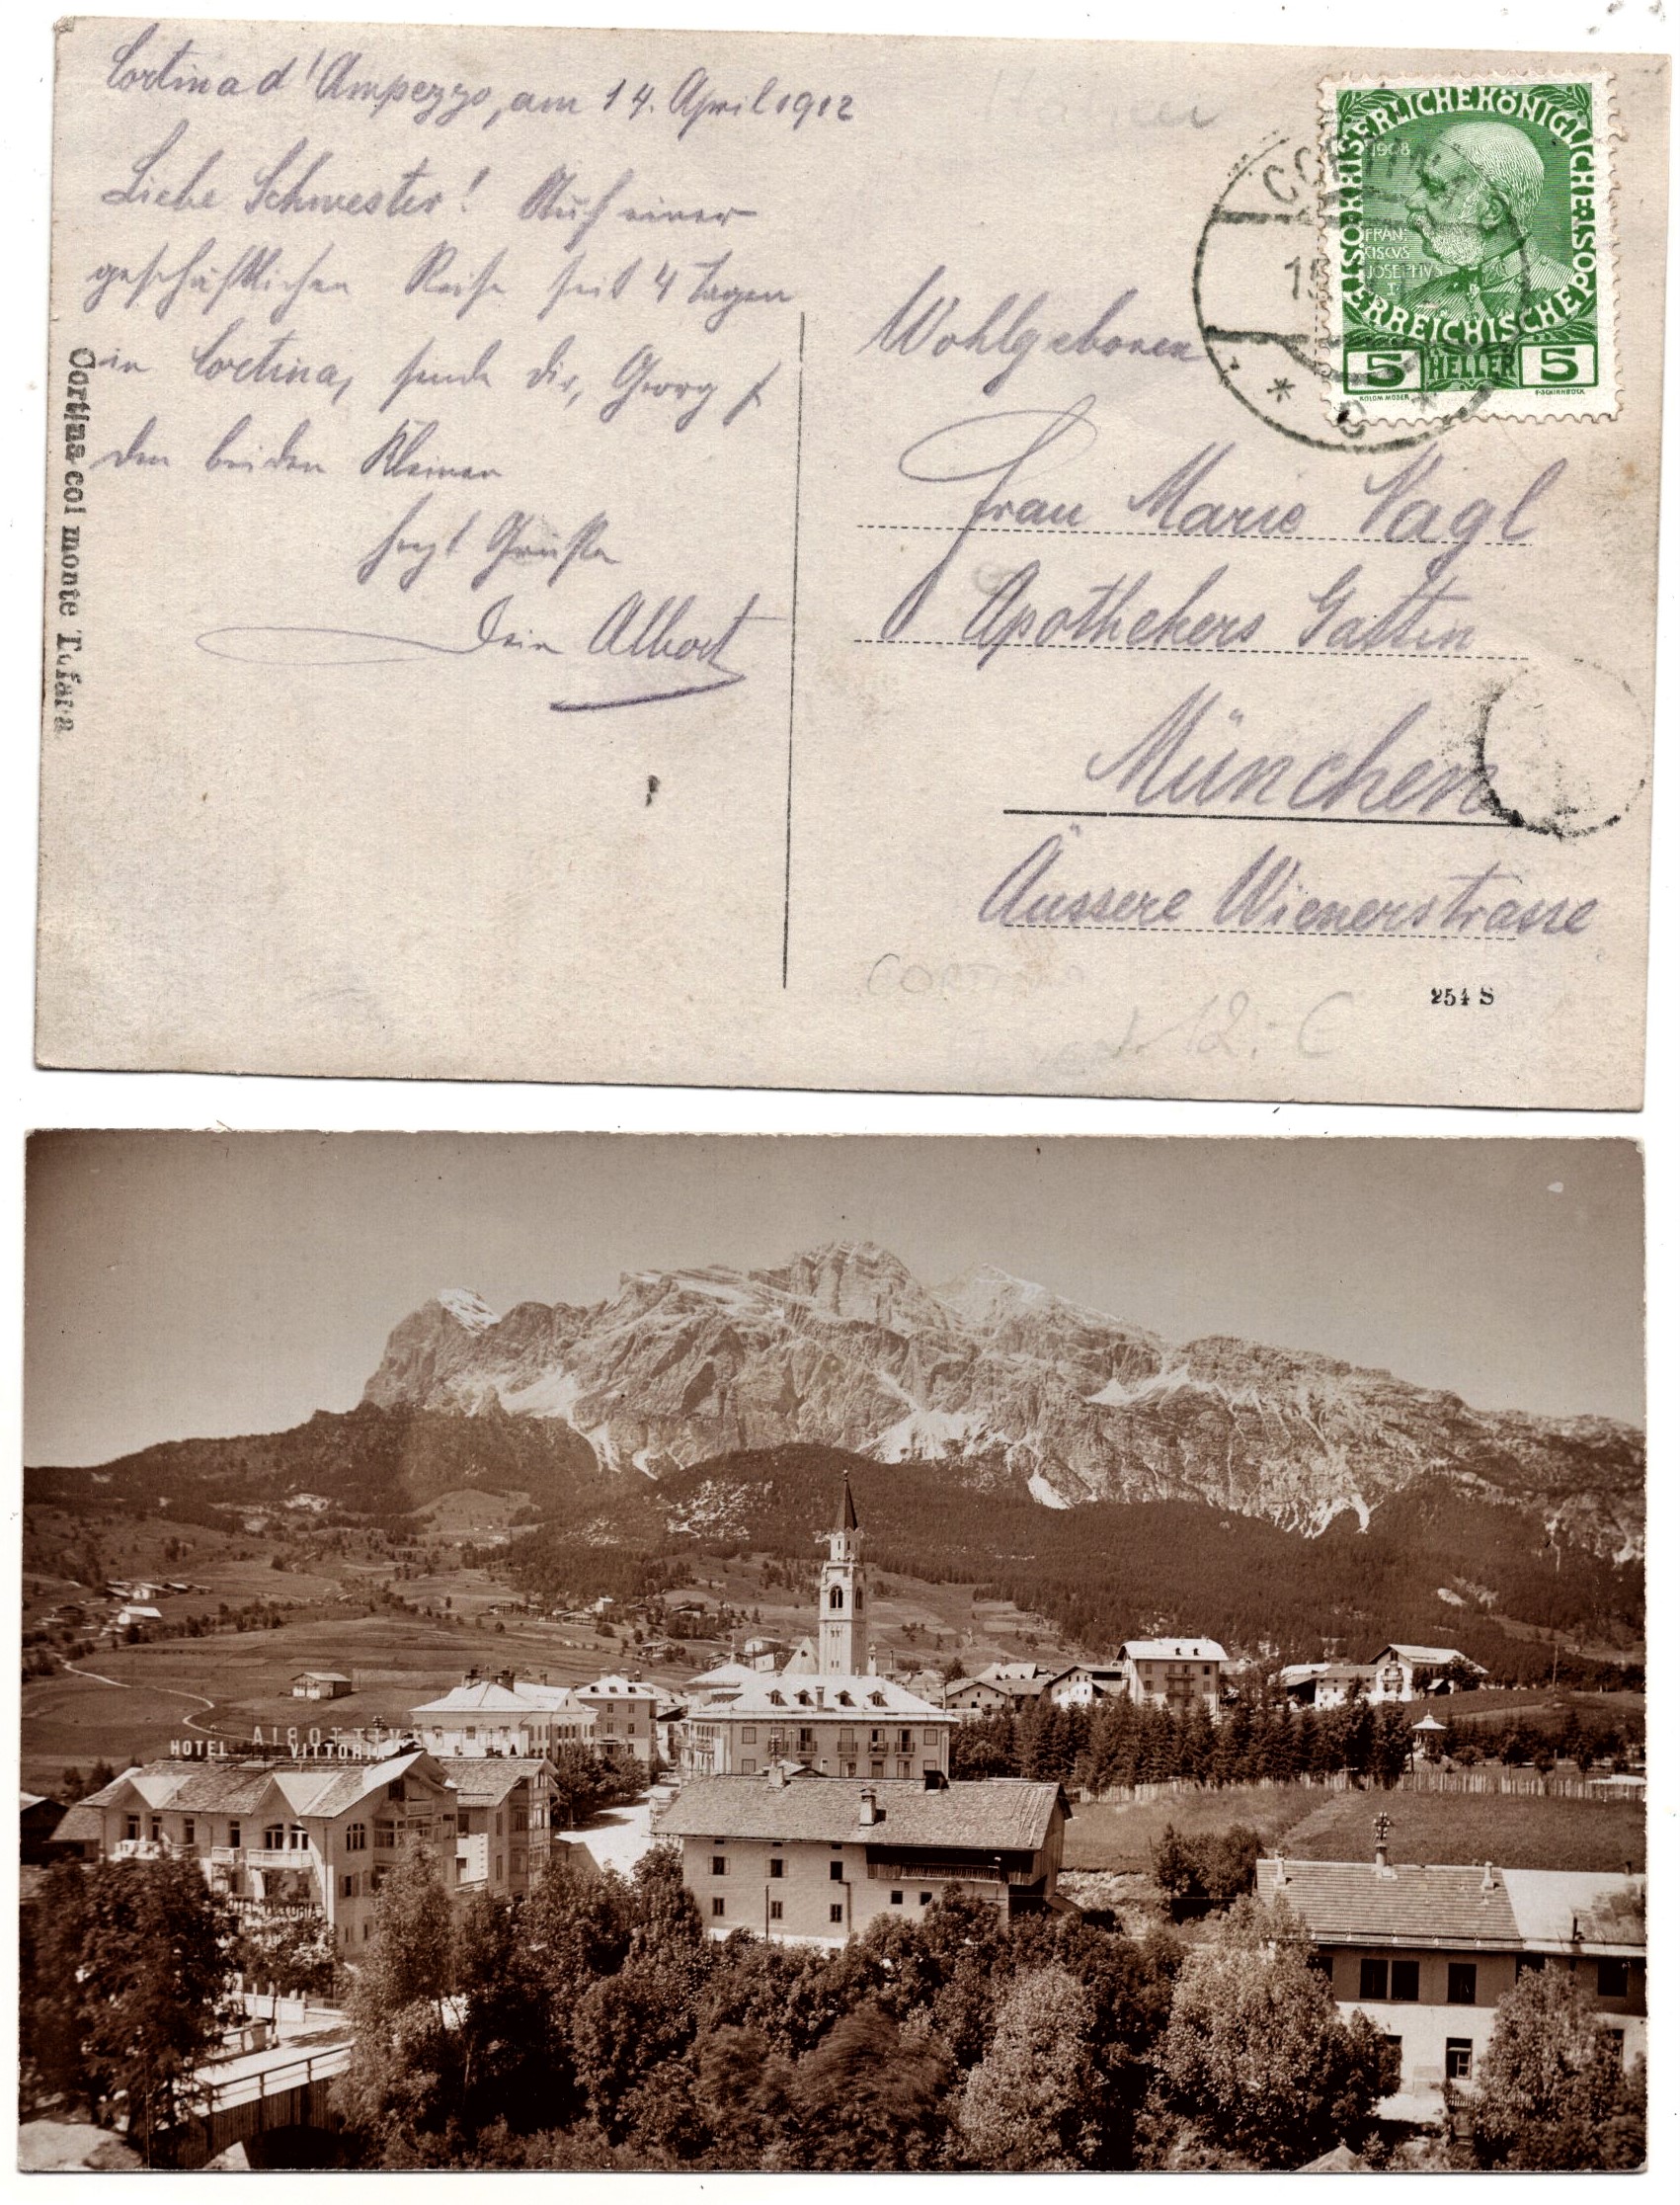 Cortina d'Ampezzo, am 14. April 1912
Liebe Schwester! Auf einer
geschäftlichen Reise seit 4 Tagen
in Cortina, sende dir, Georg &
den beiden Kleinen
hrzl Grüße
Dein Albert
Cortina col monte Tofana
KAISERLICHE KÖNIGLICHE ÖSTERREICHISCHE POST
1908
FRAN
CISCVS
JOSEPHVS
I
5 HELLER 5
KOLOM. MOSER
F. SCHIRNBÖCK
CORTINA
Wohlgeboren
Frau Marie Nagl
Apothekers Gattin
München
Äussere Wienerstrasse
CORTINA
12.- €
254 S
HOTEL VITTORIA
VITTORIA
HOTEL VITTORIA